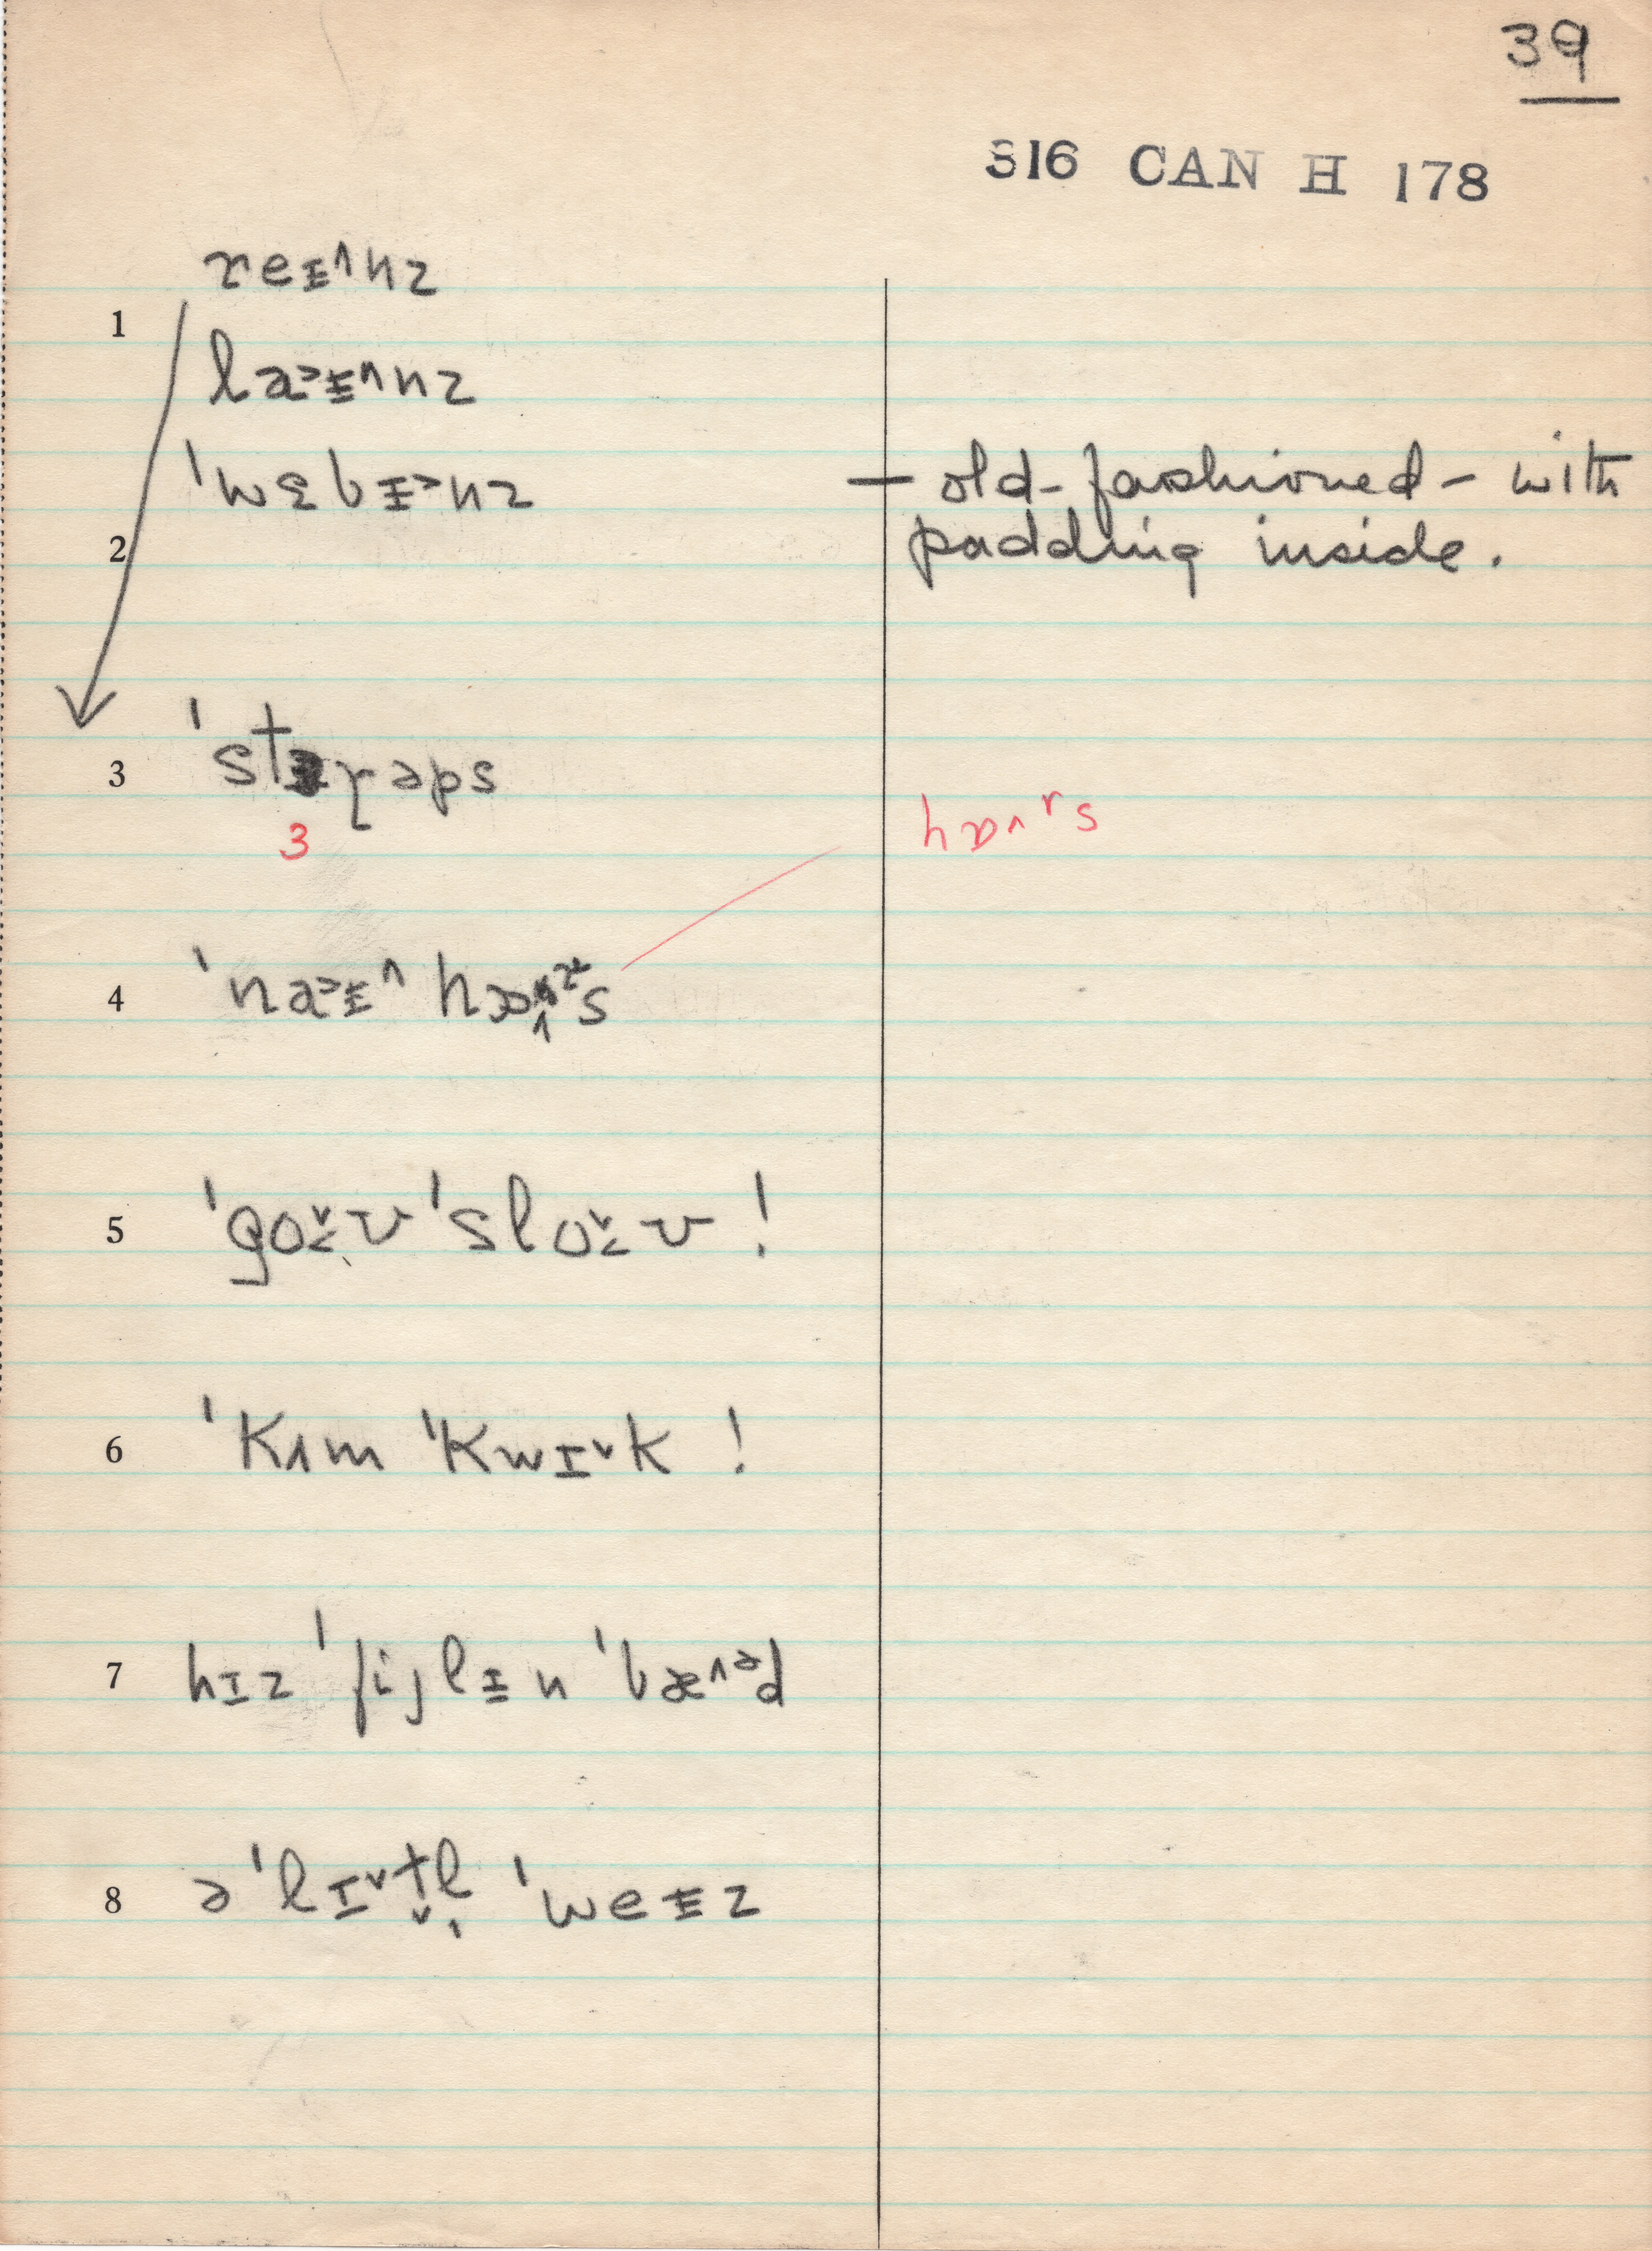 39
316 CAN H 178
reɪ̵^nz
1
la˃ɪ̵^nz
'wɛbɪ̵˃nz — old-fashioned - with
2 padding inside.
3 'stɜrəps
3
hɒ^ʳs
4 'na˃ɪ̵^ hɒ^ʳs
5 'go˅ʊ 'slo˅ʊ !
6 'Kʌm 'Kwɪ˅k !
7 hɪz 'fijlɪ̵n 'bæ^ᵊd
8 ə 'lɪ˅t̬l̩ 'weɪ̵z